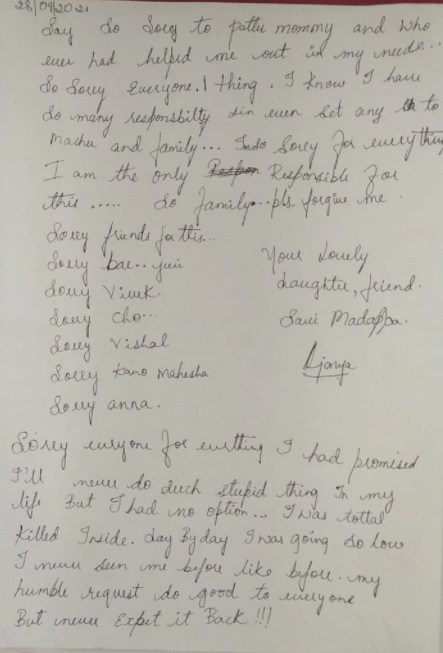 28/09/2021
Say So Sorey to pattu mommy and who
ever had helped me out in my needs...
So Sorey Everyone. 1 thing. I know I have
So many responsibilty in even Set any to
Machu and family... Sorey for everything
I am the only Responsible For
this ..... So family.. pls forgive me.
Sorey friends for this...
Sorey bae..
Sorey Vivek.
Sorey Cho...
Sorey Vishal
Sorey Kano Mahesha
Sorey anna.
Your Lovely
daughter, friend.
Savi Madappa.
Sorey everyone for everthing I had promised
I'll never do such Stupid thing In my
life But I had no option... I was tottal
Killed Inside. day By day I was going so low
I never seen me before like before. my
humble request do good to everyone
But never Expet it Back !!!